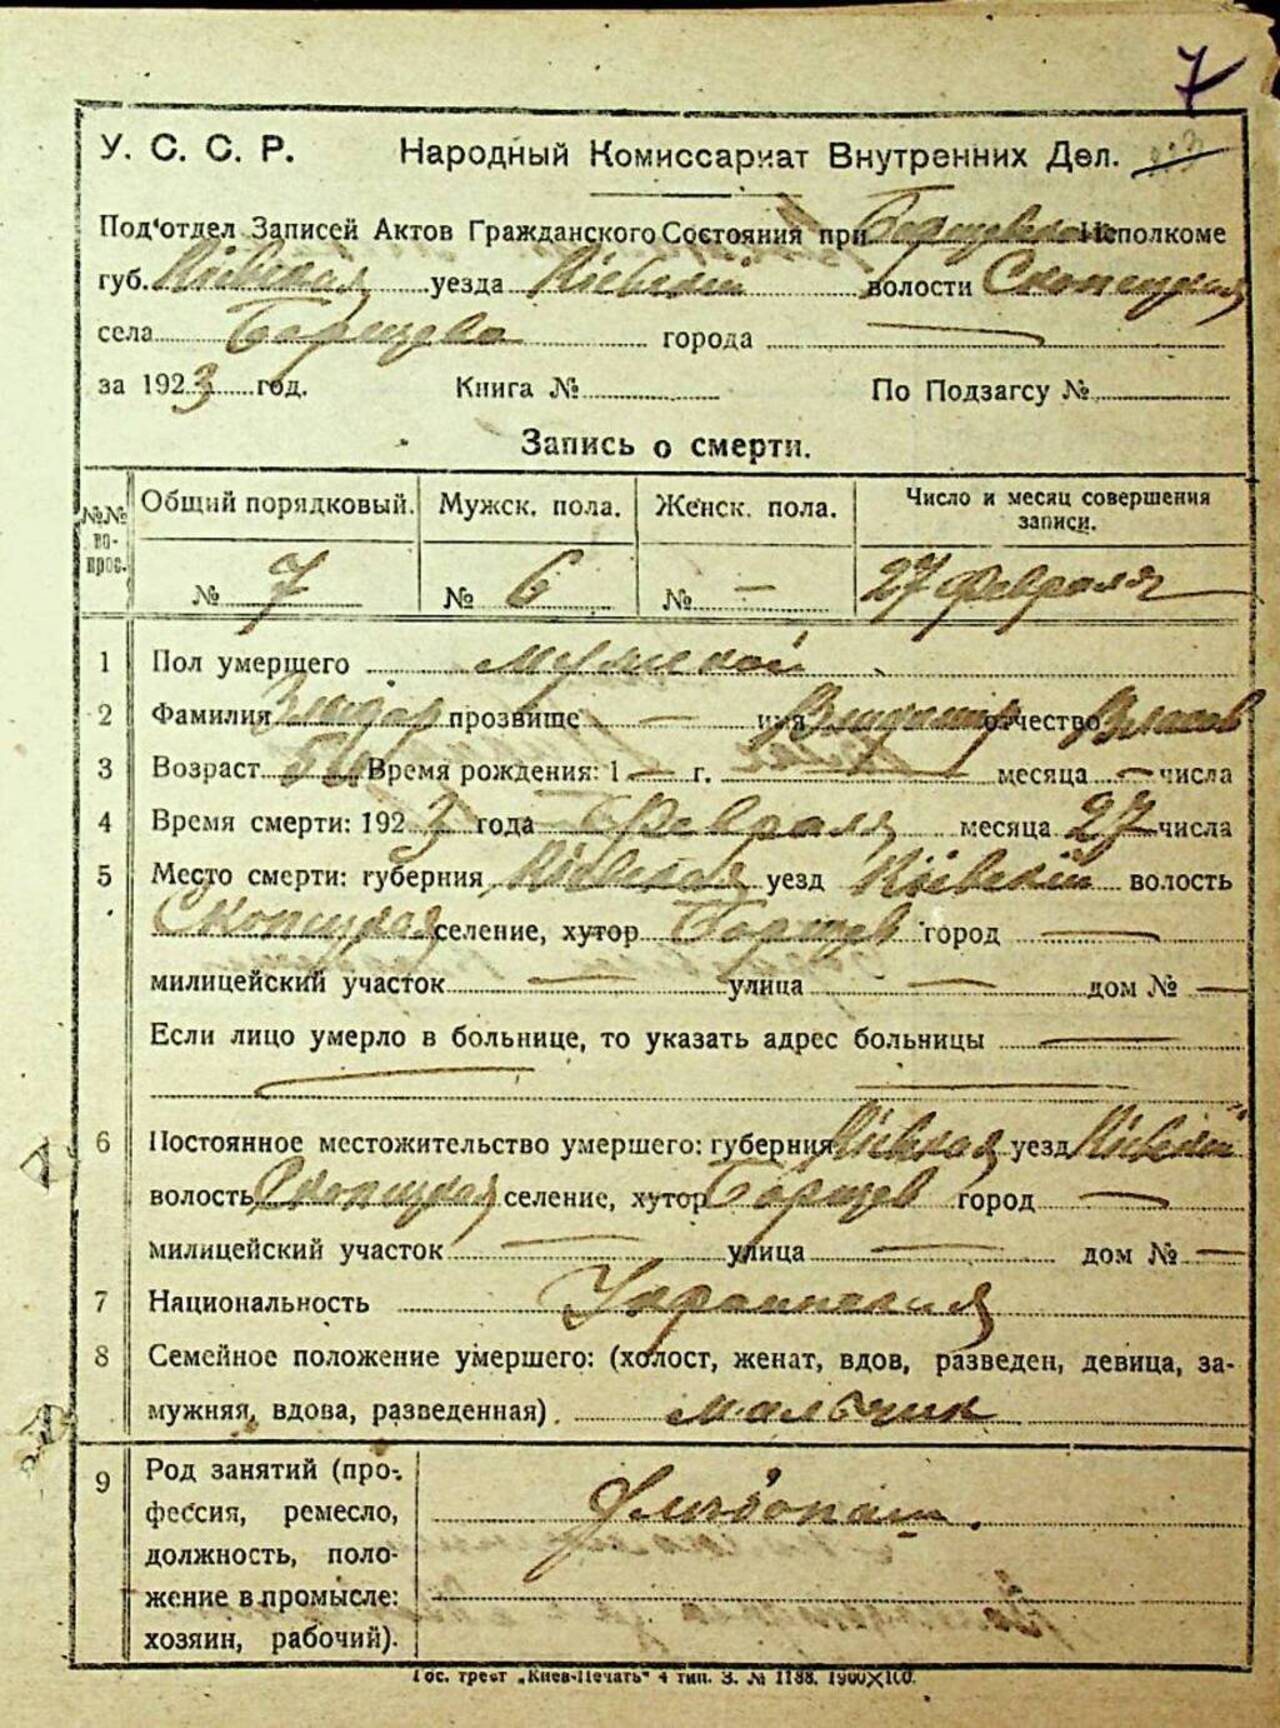 7
У. С. С. Р. Народный Комиссариат Внутренних Дел.
Под'отдел Записей Актов Гражданского Состояния при Исполкоме
губ. Кіевская уезда Кіевскій волости Скопецкая
села Борщева города —
за 1923 год. Книга № По Подзагсу №
Запись о смерти.
№№ во-прос. Общий порядковый. Мужск. пола. Женск. пола. Число и месяц совершения записи.
№ 7 № 6 № — 27 февраля
1 Пол умершего мужской
2 Фамилия прозвище — имя Владимир отчество
3 Возраст Время рождения: 1 — г. — месяца — числа
4 Время смерти: 1923 года Февраля месяца 27 числа
5 Место смерти: губерния Кіевская уезд Кіевскій волость
Скопецкая селение, хутор Борщев город —
милицейский участок — улица — дом № —
Если лицо умерло в больнице, то указать адрес больницы —
— —
6 Постоянное местожительство умершего: губерния Кіевская уезд Кіевскій
волость Скопецкая селение, хутор Борщев город —
милицейский участок — улица — дом № —
7 Национальность Украинская
8 Семейное положение умершего: (холост, женат, вдов, разведен, девица, за-
мужняя, вдова, разведенная). мальчик
9 Род занятий (про-
фессия, ремесло, хлибопаш.
должность, поло-
жение в промысле:
хозяин, рабочий).
Гос. трест „Киев-Печать“ 4 тип. З. № 1188. 1900×100.